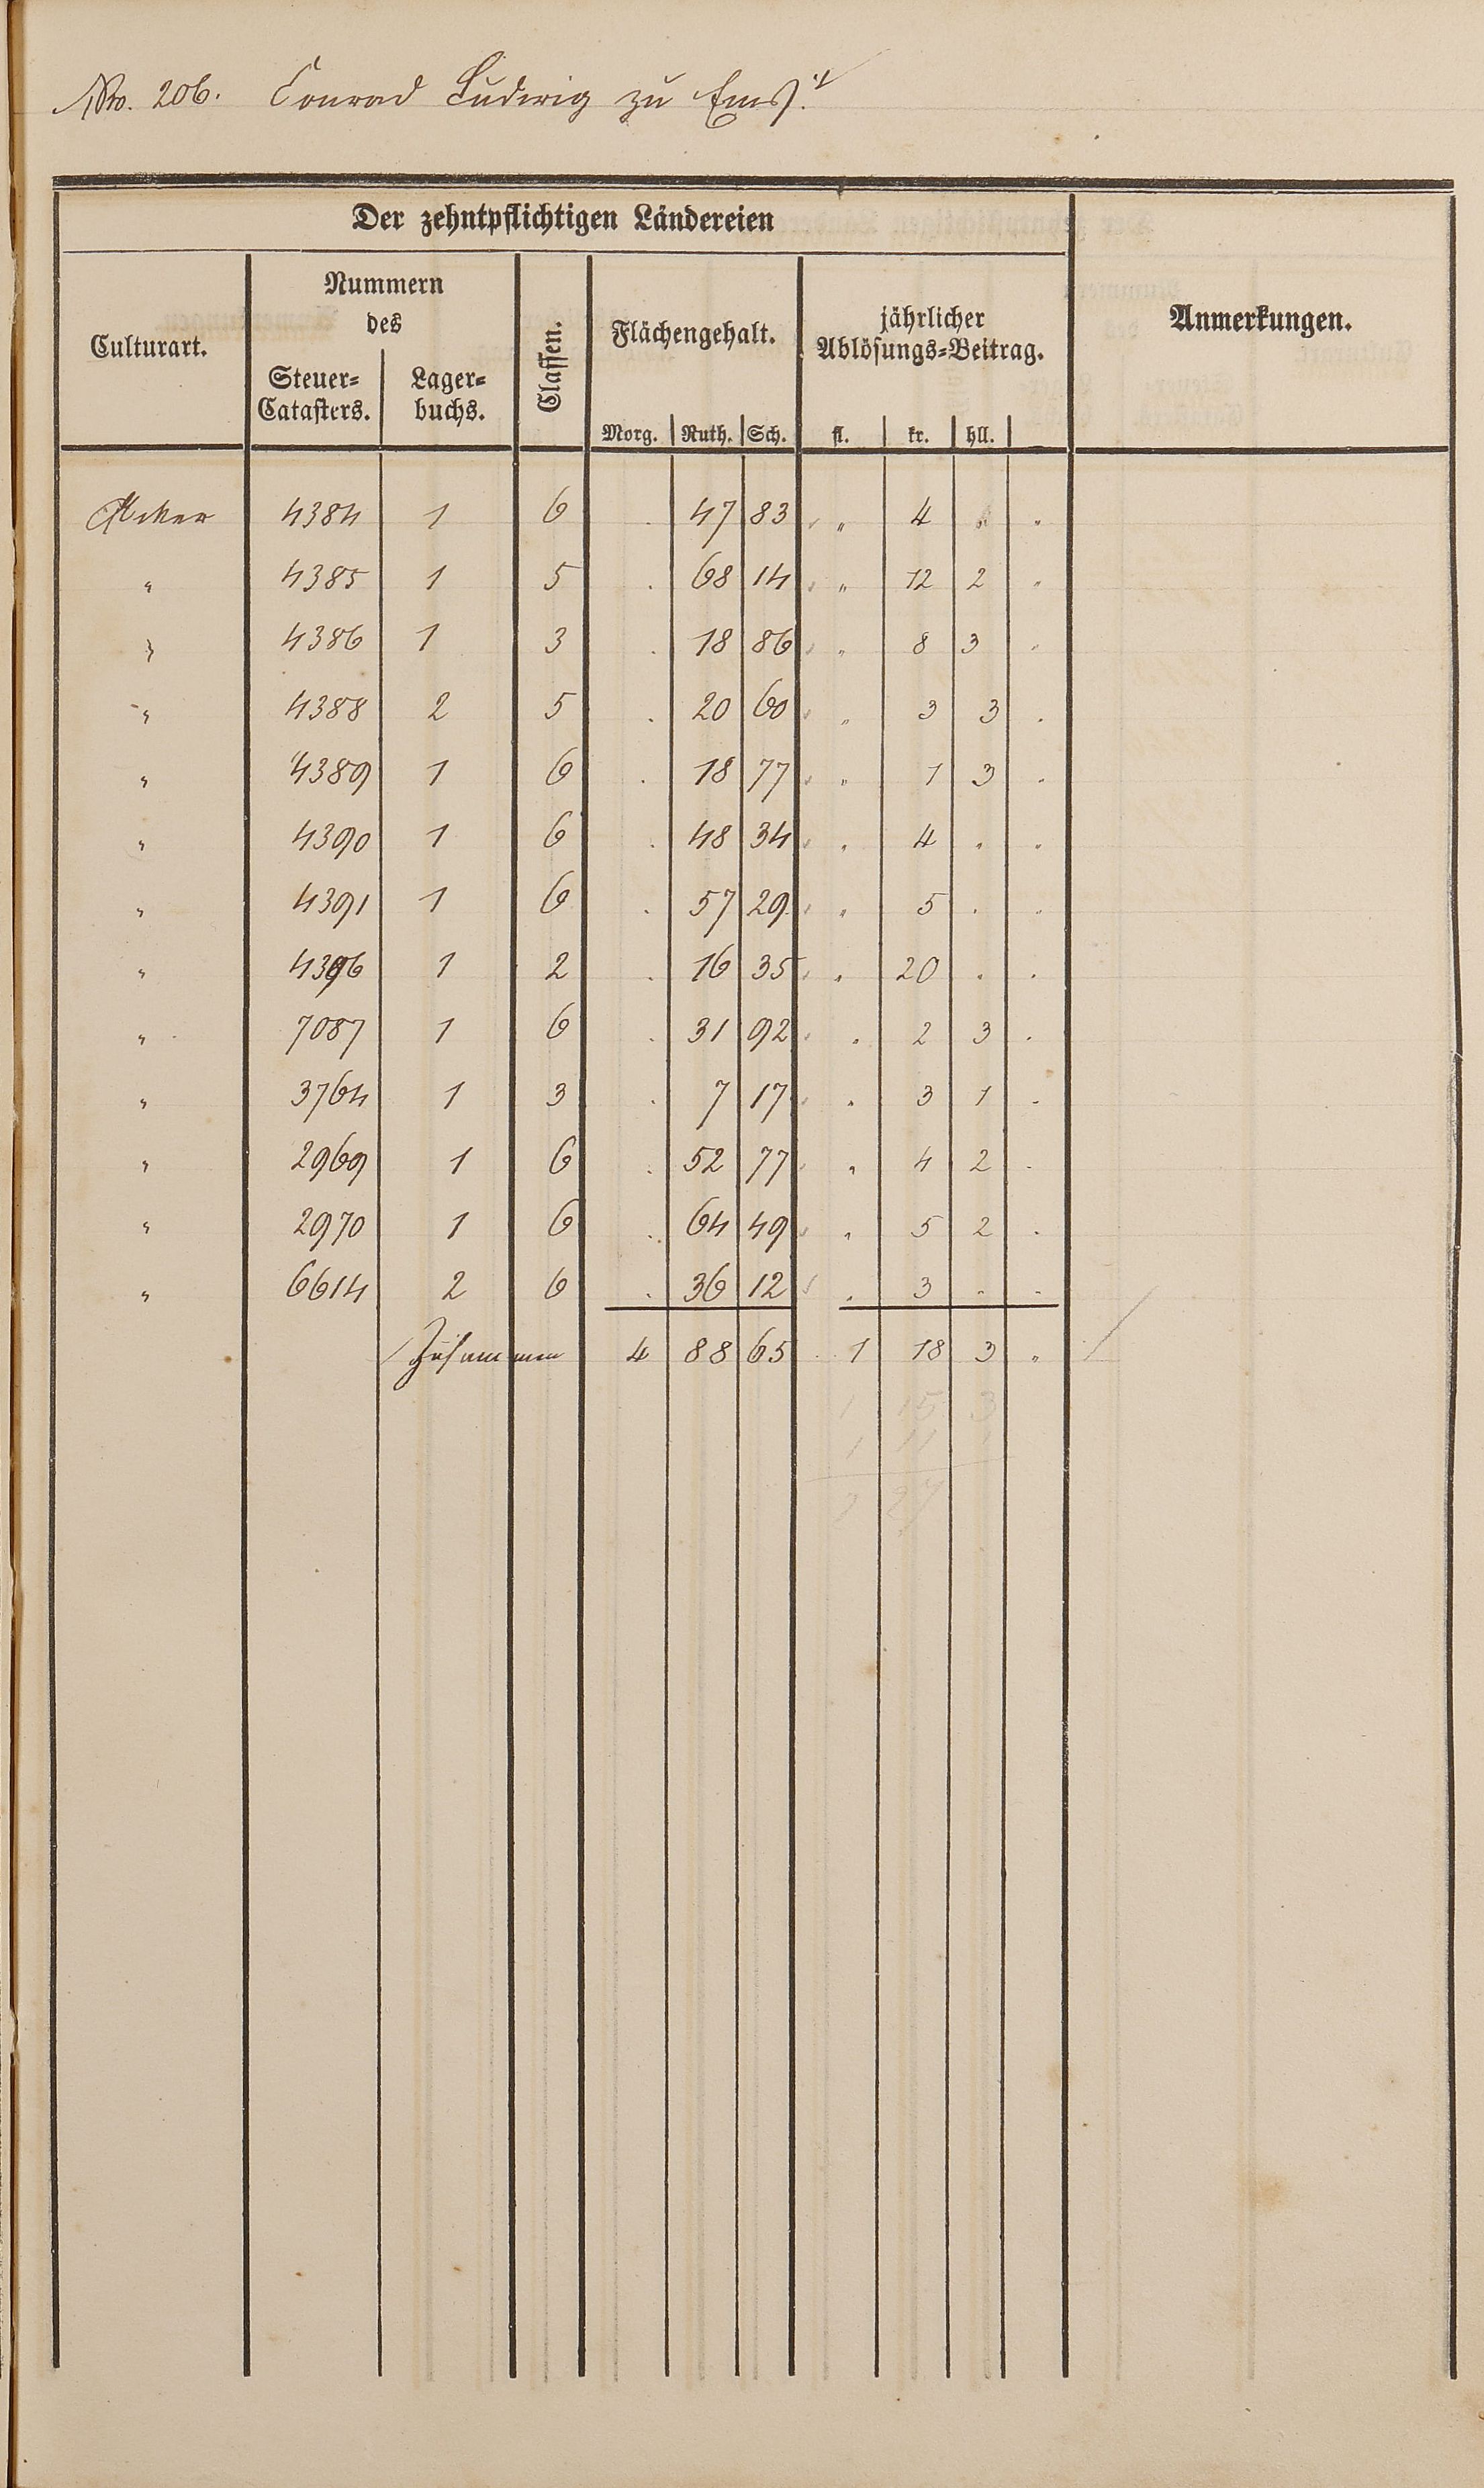 Nro. 206. Conrad Ludwig zu Ems.
Der zehntpflichtigen Ländereien
Culturart. Nummern des Steuer-Catasters. Lager-buchs. Classen. Flächengehalt. jährlicher Ablösungs-Beitrag. Anmerkungen.
Morg. Ruth. Sch. fl. kr. hll.
Acker 4384 1 6 . 47 83 " 4 .
" 4385 1 5 . 68 14 " 12 2 "
" 4386 1 3 . 18 86 " 8 3 "
" 4388 2 5 . 20 60 " 3 3 .
" 4389 1 6 . 18 77 " 1 3 .
" 4390 1 6 . 48 34 . 4 . .
" 4391 1 6 . 57 29 " 5 . .
" 4396 1 2 . 16 35 . 20 . .
" 7087 1 6 . 31 92 . 2 3 .
" 3764 1 3 . 7 17 . 3 1 .
" 2969 1 6 . 52 77 . 4 2 .
" 2970 1 6 . 64 49 . 5 2 .
" 6614 2 6 . 36 12 . 3 . .
Zusammen 4 88 65 1 18 3 "
1 15 3
1 11